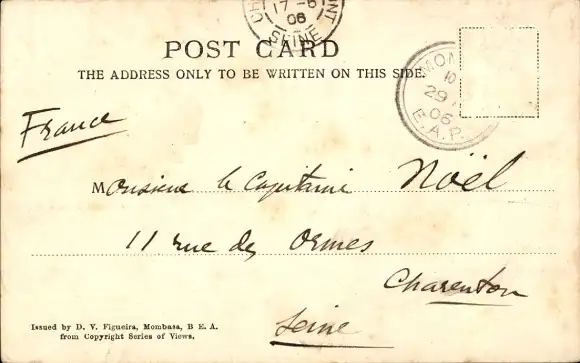 17-6
06
SEINE
POST CARD
THE ADDRESS ONLY TO BE WRITTEN ON THIS SIDE.
MOM
10
29
06
E.A.P.
France
Monsieur le Capitaine Noël
11 rue des Ormes
Charenton
Seine
Issued by D. V. Figueira, Mombasa, B E. A.
from Copyright Series of Views.